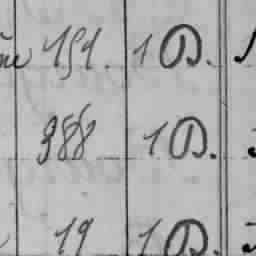 151. 1 D.
388 1 D.
19 1 D.